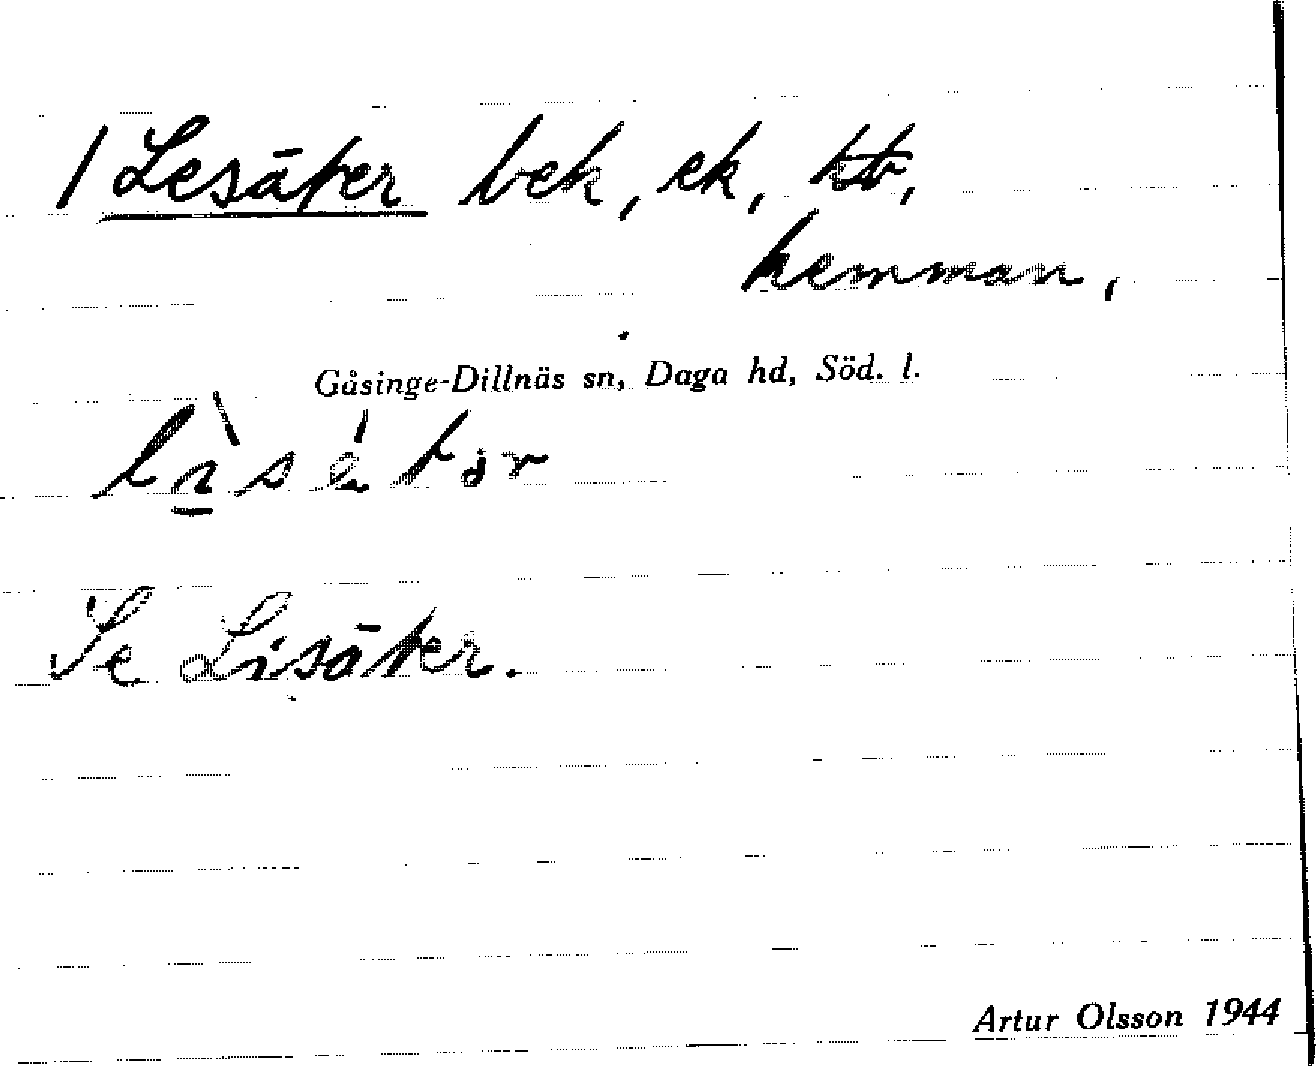 / Lesäter bek, ek, htr,
hemman,
Gåsinge-Dillnäs sn, Daga hd, Söd. l.
Se Lisäter.
Artur Olsson 1944